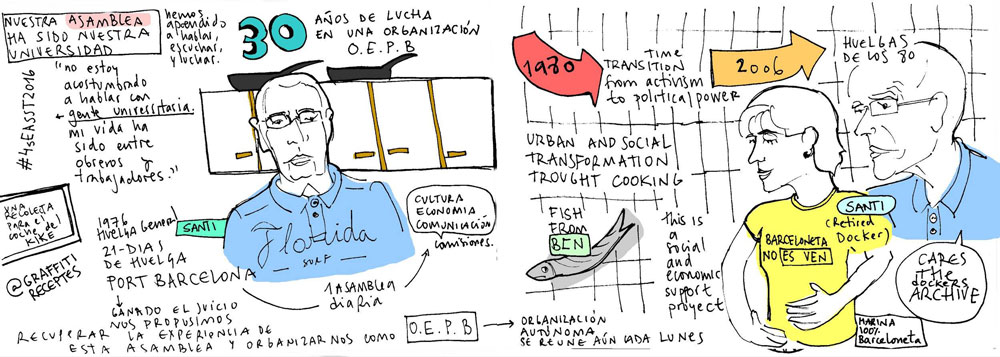 NUESTRA ASAMBLEA
HA SIDO NUESTRA
UNIVERSIDAD
hemos
aprendido
a hablar,
escuchar,
y luchar.
30
AÑOS DE LUCHA
EN UNA ORGANIZACIÓN
O.E.P.B
#4SEASST2016
"no estoy
acostumbrado
a hablar con
gente universitaria.
mi vida ha
sido entre
obreros y
trabajadores."
UNA
RECOLETA
PARA el
coche del
KIKE
@GRAFFITI
RECEPTES
1976
HUELGA General
21-DIAS
DE HUELGA
PORT BARCELONA
SANTI
Florida
SURF
CULTURA
ECONOMIA
COMUNICACIÓN
comisiones.
1 ASAMBLEA
diaria
GANADO EL JUICIO
NOS PROPUSIMOS
RECUPERAR LA EXPERIENCIA DE
ESTA ASAMBLEA Y ORGANIZARNOS COMO
O.E.P.B
ORGANIZACIÓN
AUTÓNOMA
SE REUNE AÚN CADA LUNES
1980
TIME
TRANSITION
from activism
to political power
2006
HUELGAS
DE LOS 80
URBAN AND SOCIAL
TRANSFORMATION
TROUGHT COOKING
FISH
FROM
BCN
this is
a
social
and
economic
support
proyect
BARCELONETA
NO ES VEN
SANTI
(Retired
DOCKER)
CARES
the
dockers
ARCHIVE
MARINA
100%
Barceloneta